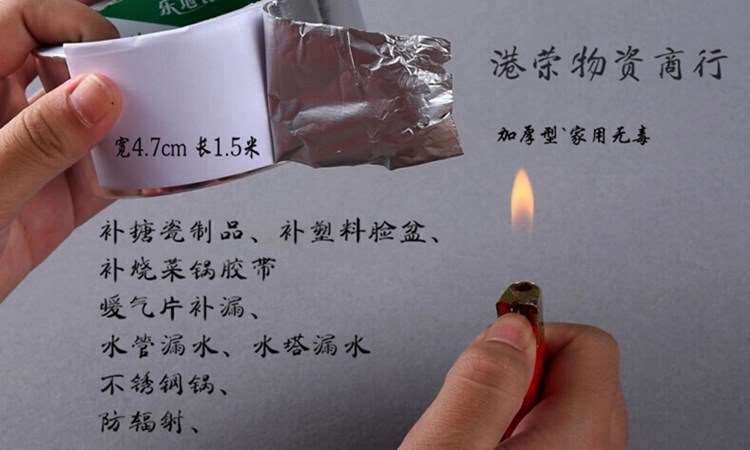 港荣物资商行
加厚型`家用无毒
宽4.7cm 长1.5米
补搪瓷制品、补塑料脸盆、
补烧菜锅胶带
暖气片补漏、
水管漏水、水塔漏水
不锈钢锅、
防辐射、